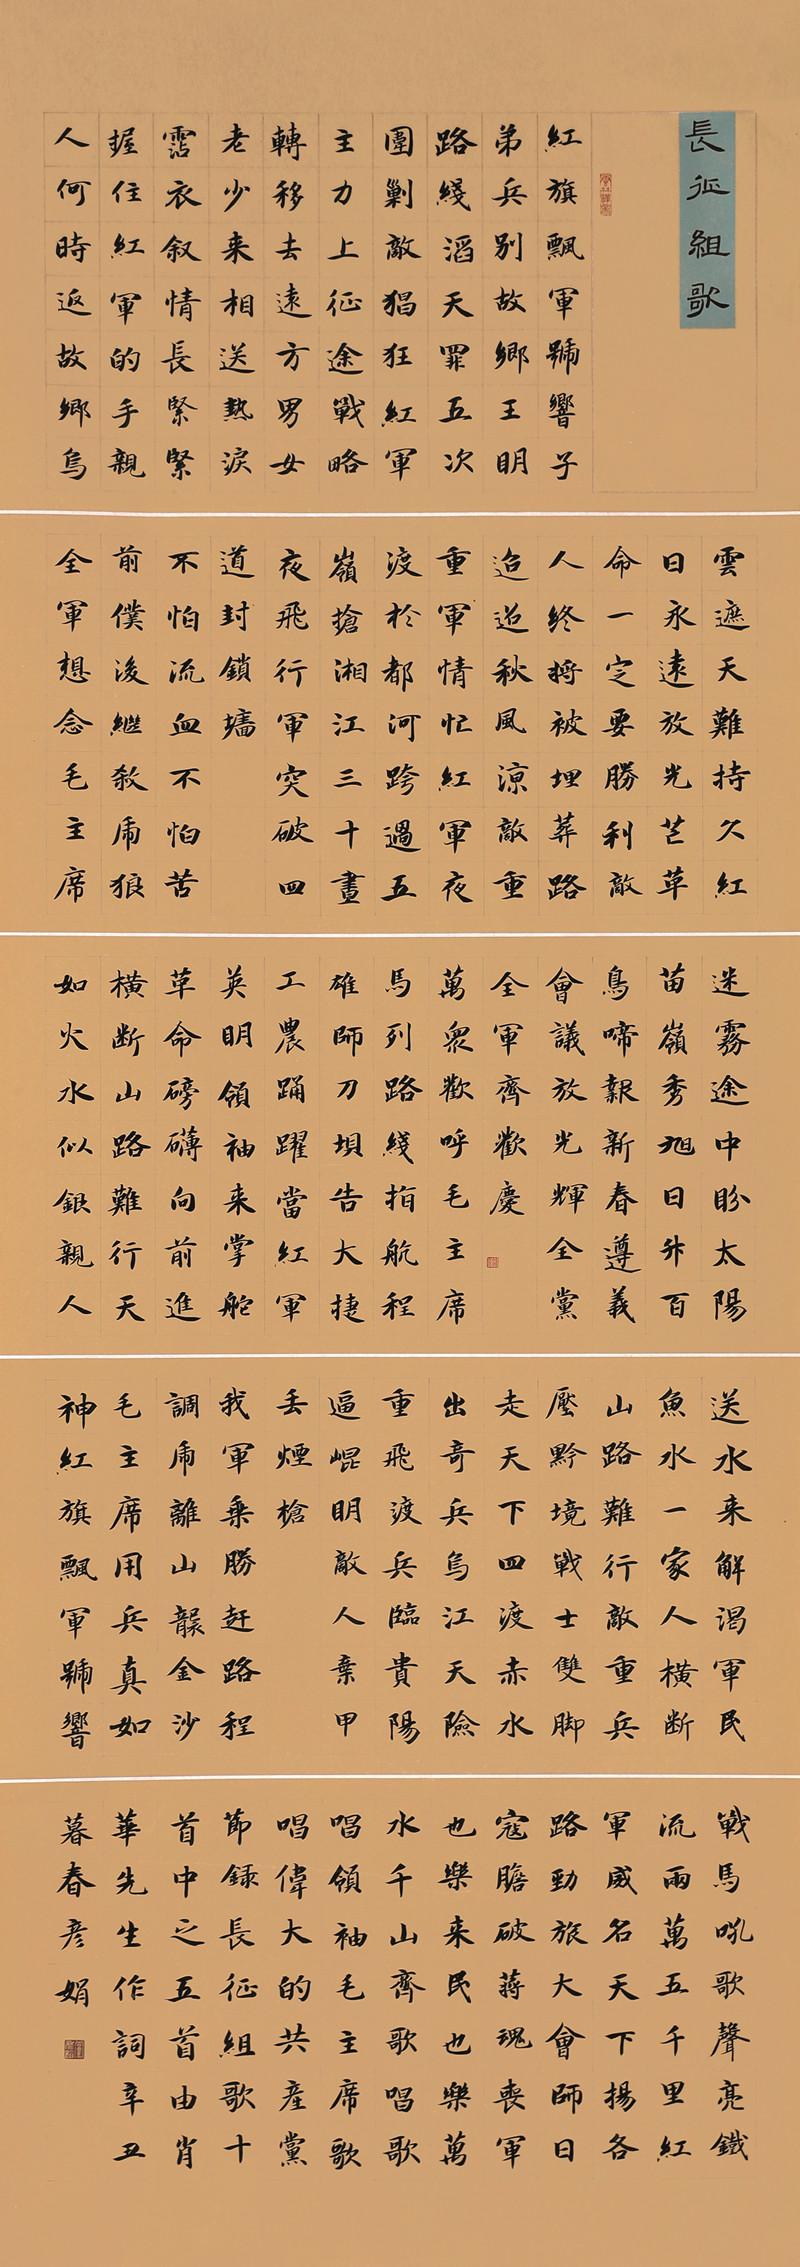 長征組歌
紅旗飄軍號響子
弟兵別故鄉王明
路綫滔天罪五次
圍剿敵猖狂紅軍
主力上征途戰略
轉移去遠方男女
老少来相送熱淚
霑衣叙情長緊緊
握住紅軍的手親
人何時返故鄉烏
雲遮天難持久紅
日永遠放光芒革
命一定要勝利敵
人終將被埋葬路
迢迢秋風涼敵重
重軍情忙紅軍夜
渡於都河跨過五
嶺搶湘江三十晝
夜飛行軍突破四
道封鎖墻
不怕流血不怕苦
前僕後繼殺虎狼
全軍想念毛主席
迷霧途中盼太陽
苗嶺秀旭日升百
鳥啼報新春遵義
會議放光輝全黨
全軍齊歡慶
萬衆歡呼毛主席
馬列路綫指航程
雄師刀壩告大捷
工農踊躍當紅軍
英明領袖来掌舵
革命磅礴向前進
橫断山路難行天
如火水似銀親人
送水来解渴軍民
魚水一家人橫断
山路難行敵重兵
壓黔境戰士雙脚
走天下四渡赤水
出奇兵烏江天險
重飛渡兵臨貴陽
逼崐明敵人棄甲
丢煙槍
我軍乘勝赶路程
調虎離山襲金沙
毛主席用兵真如
神紅旗飄軍號響
戰馬吼歌聲亮鐵
流兩萬五千里紅
軍威名天下揚各
路勁旅大會師日
寇膽破蔣魂喪軍
也樂来民也樂萬
水千山齊歌唱歌
唱領袖毛主席歌
唱偉大的共產黨
節録長征組歌十
首中之五首由肖
華先生作詞辛丑
暮春彦娟